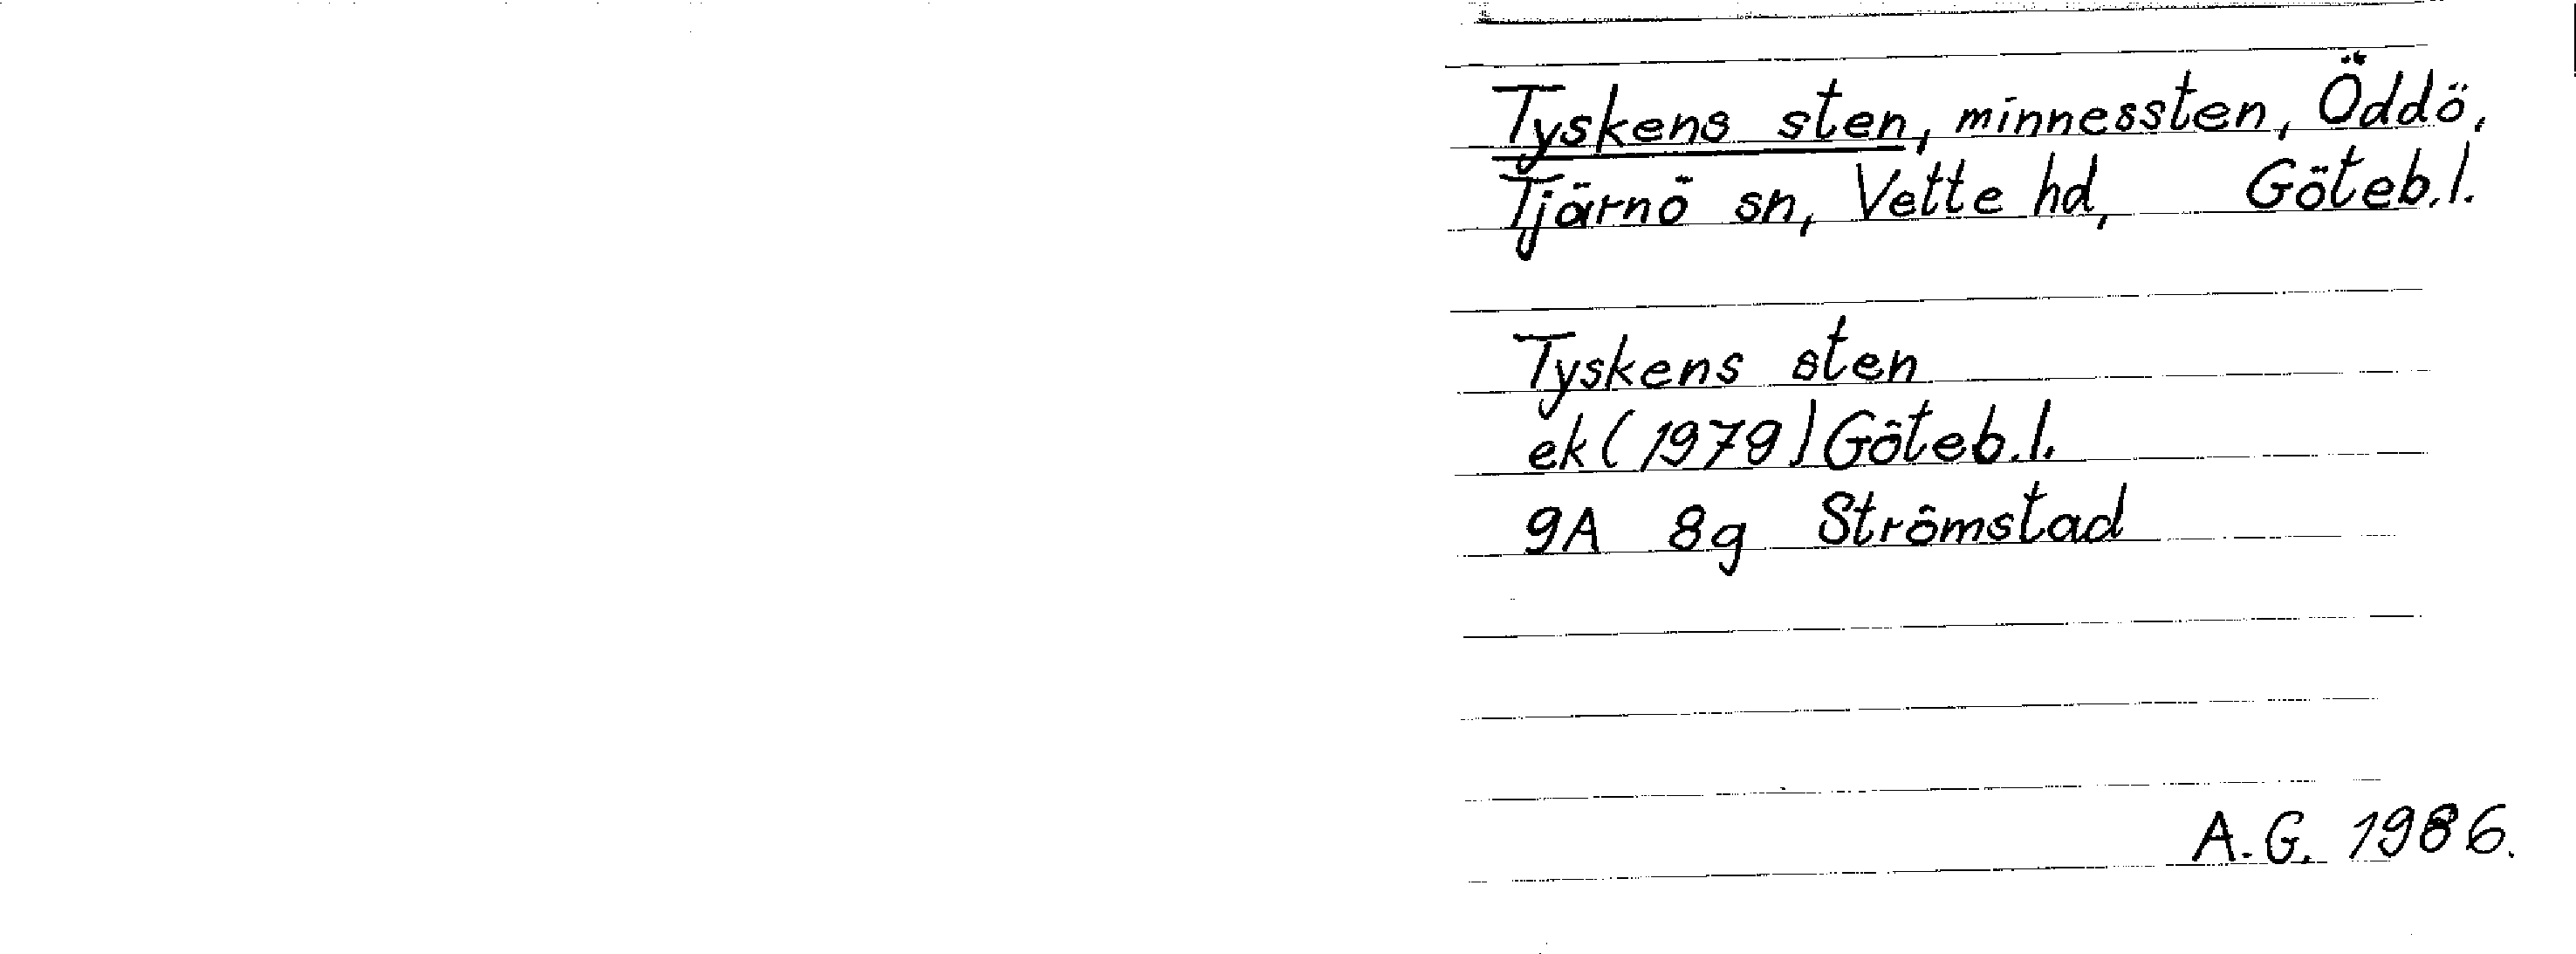 Tyskens sten, minnessten, Öddö,
Tjärnö sn, Vette hd, Göteb.l.
Tyskens sten
ek (1979) Göteb.l.
9A 8g Strömstad
A.G. 1986.